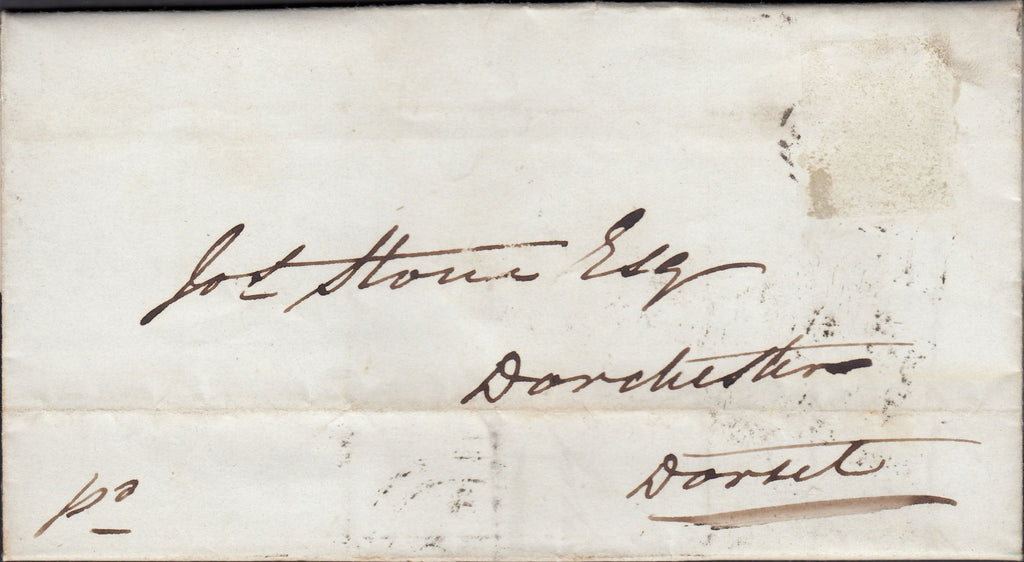 Jos Stone Esq
Dorchester
Dorset
pd